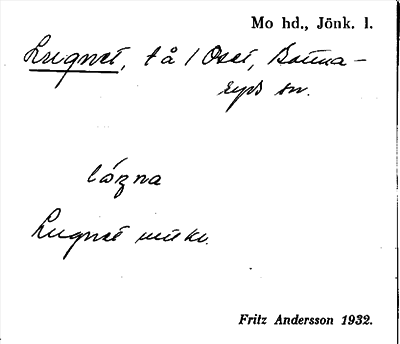 Mo hd., Jönk. l.
Lugnet, t å / Oset, Bottna-
ryds sn.
Lugnet
Fritz Andersson 1932.